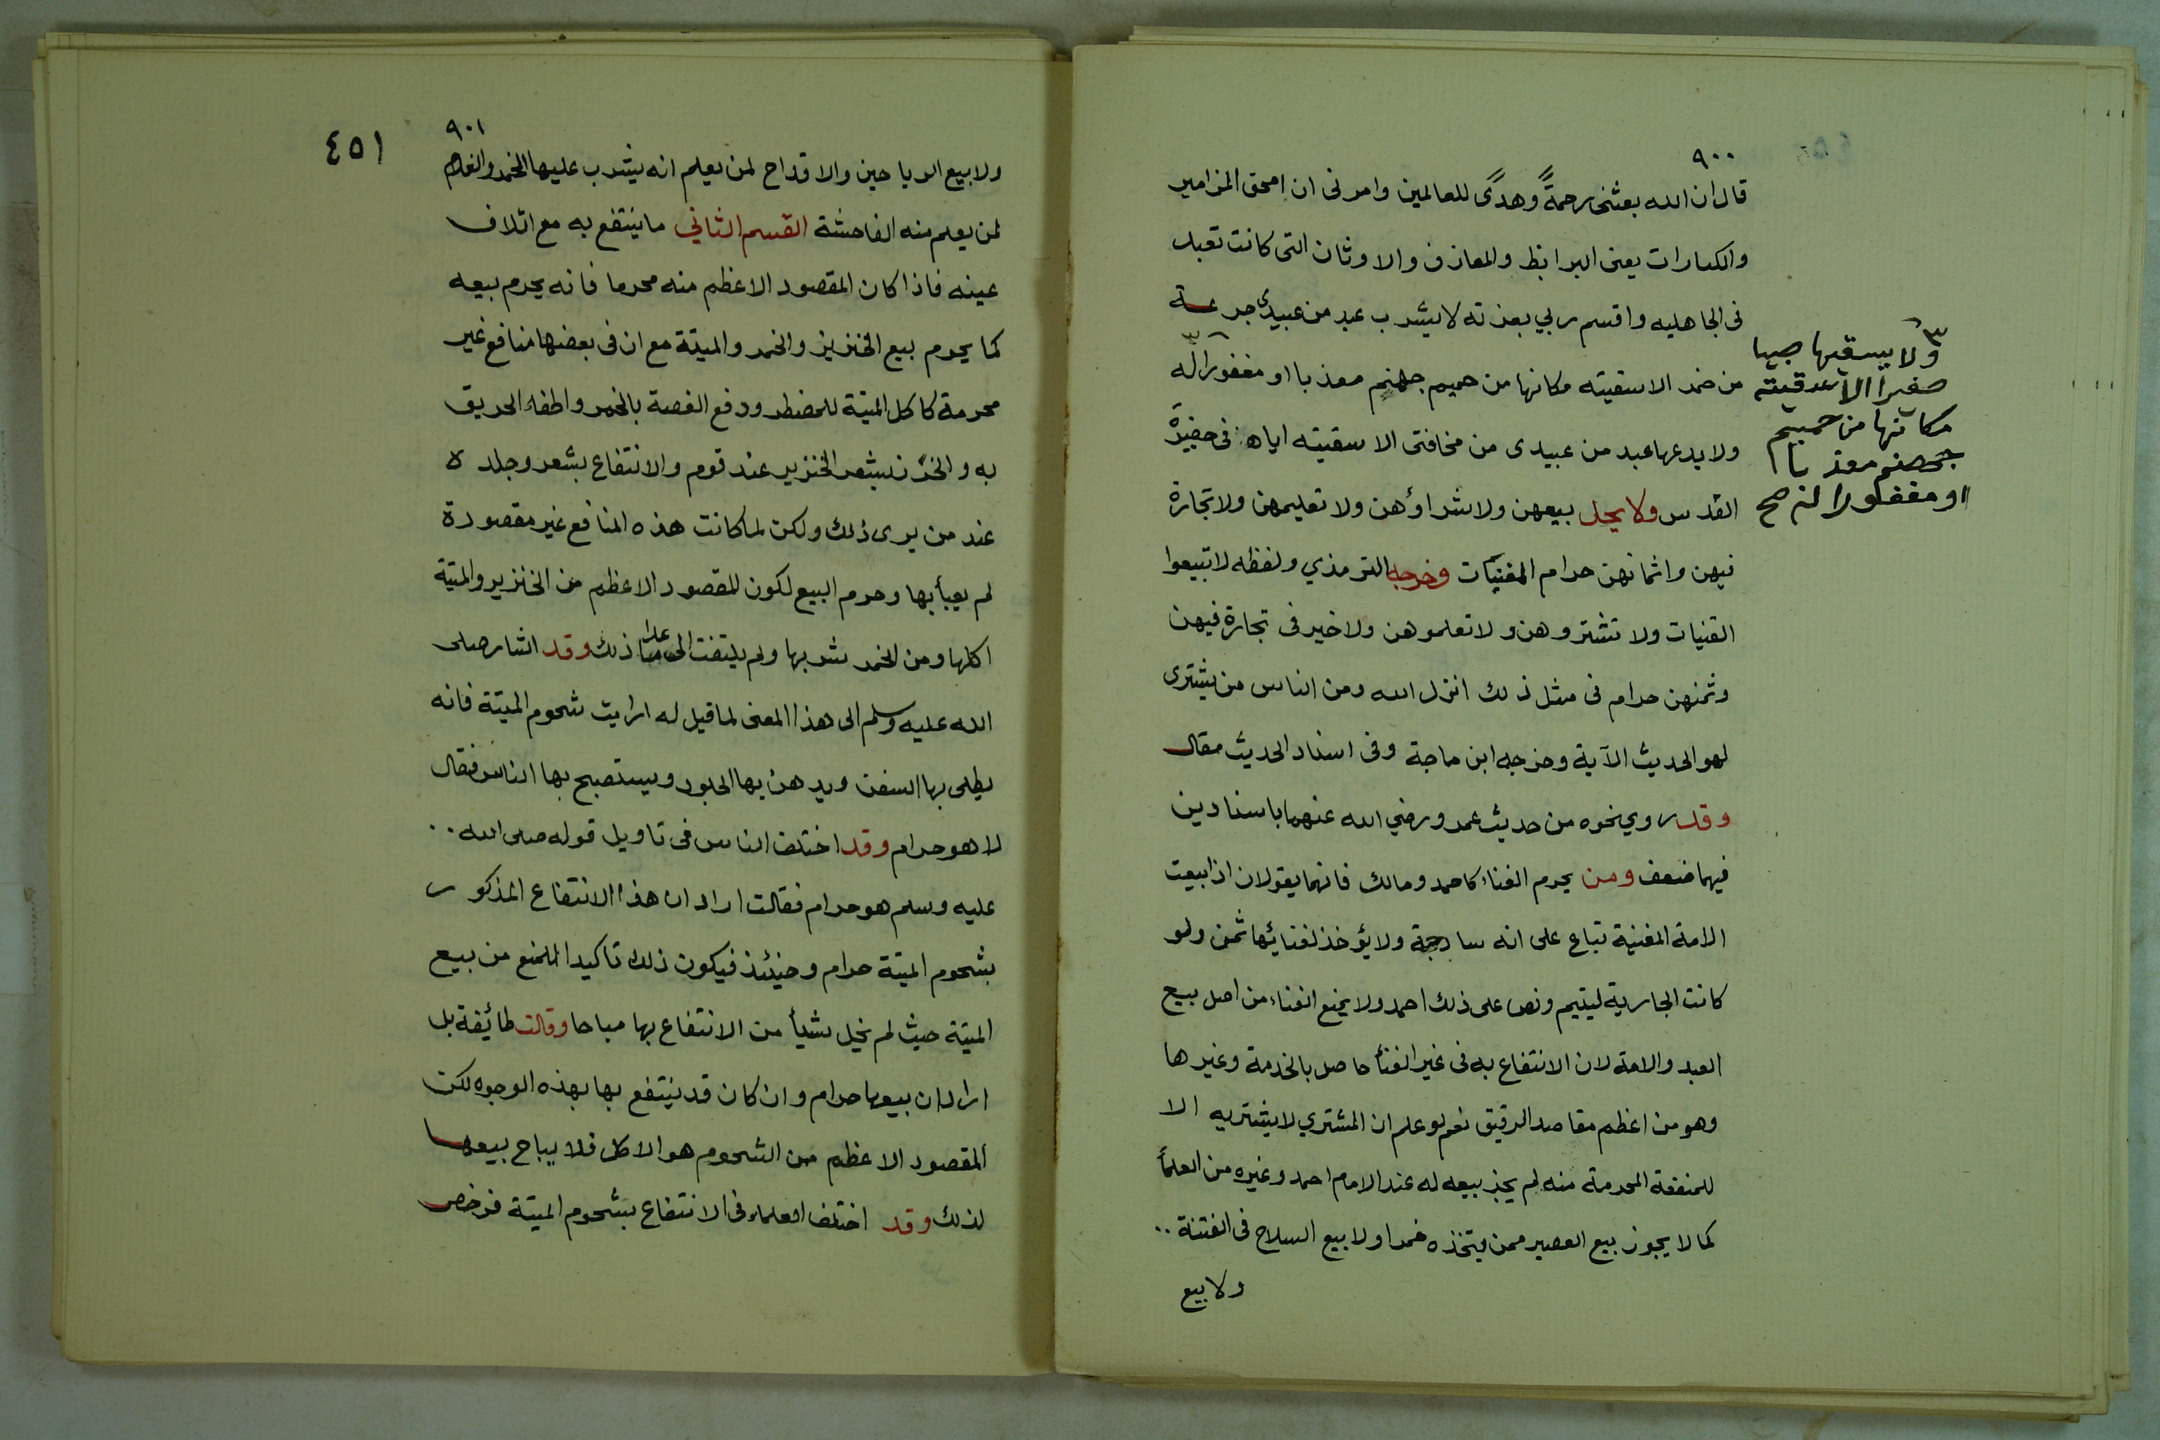 ٩٠٠
قال ان الله بعثنى رحمةً وهدًى للعالمين وامرنى ان امحق المزامير
والكبارات يعنى البرابط والمعازف والاوثان التى كانت تعبد
فى الجاهليه واقسم ربي بعزته لا يشرب عبد من عبيدى جرعة
من خمر الا سقيته مكانها من حميم جهنم معذبا او مغفورا له
ولا يسقيها صبيا
صغيرا الا سقيته
مكانها من حميم
جهنم معذبا
او مغفورا له صح
ولا يدعها عبد من عبيدى من مخافتى الا سقيته اياها فى حضيرة
القدس ولا يحل بيعهن ولا شراؤهن ولا تعليمهن ولا تجارة
فيهن واثمانهن حرام المغنيات وخرجه الترمذي ولفظه لا تبيعوا
القنيات ولا تشتروهن ولا تعلموهن ولا خير فى تجارة فيهن
وثمنهن حرام فى مثل ذلك انزل الله ومن الناس من يشترى
لهو الحديث الآية وخرجه ابن ماجة وفى اسناد الحديث مقال
وقد روي نحوه من حديث عمر ورضي الله عنهما باسنادين
فيهما ضعف ومن يحرم الغناء كاحمد ومالك فانهما يقولان اذا بيعت
الامة المغنية تباع على انه ساذجة ولا يؤخذ لغنائها ثمن ولو
كانت الجارية ليتيم ونص على ذلك احمد ولا يمنع الغناء من اصل بيع
العبد والامة لان الانتفاع به فى غير الغنأ حاصل بالخدمة وغيرها
وهو من اعظم مقاصد الرقيق نعم لو علم ان المشتري لا يشتريه الا
للمنفعة المحرمة منه لم يجز بيعه له عند الامام احمد وغيره من العلمأ
كما لا يجوز بيع العصير ممن يتخذه خمرا ولا بيع السلاح فى الفتنة ..
ولا بيع
٩٠١
٤٥١
ولا بيع الرياحين والاقداح لمن يعلم انه يشرب عليها الخمر والغلام
لمن يعلم منه الفاحشة القسم الثاني ما ينتفع به مع اتلاف
عينه فاذا كان المقصود الاعظم منه محرما فانه يحرم بيعه
كما يحرم بيع الخنزير والخمر والميتة مع ان فى بعضها منافع غير
محرمة كاكل الميتة للمضطر ودفع الغصة بالخمر واطفاء الحريق
به والخرز بشعر الخنزير عند قوم والانتفاع بشعر وجلده
عند من يرى ذلك ولكن لما كانت هذه المنافع غير مقصودة
لم يعبأ بها وحرم البيع لكون المقصود الاعظم من الخنزير والميتة
اكلها ومن الخمر شربها ولم يلتفت الى ما عدا ذلك وقد اشار صلى
الله عليه وسلم الى هذا المعنى لما قيل له ارايت شحوم الميتة فانه
يطلى بها السفن ويدهن بها الجلود ويستصبح بها الناس فقال
لا هو حرام وقد اختلف الناس فى تاويل قوله صلى الله ..
عليه وسلم هو حرام فقالت اراد ان هذا الانتفاع المذكور
بشحوم الميتة حرام وحنيئذ فيكون ذلك تاكيدا للمنع من بيع
الميتة حيث لم يجل شيأ من الانتفاع بها مباحا وقالت طائفة بل
اراد ان بيعها حرام وان كان قد ينتفع بها بهذه الوجوه لكن
المقصود الاعظم من الشحوم هو الاكل فلا يباح بيعها
لذلك وقد اختلف العلماء فى الانتفاع بشحوم الميتة فرخص